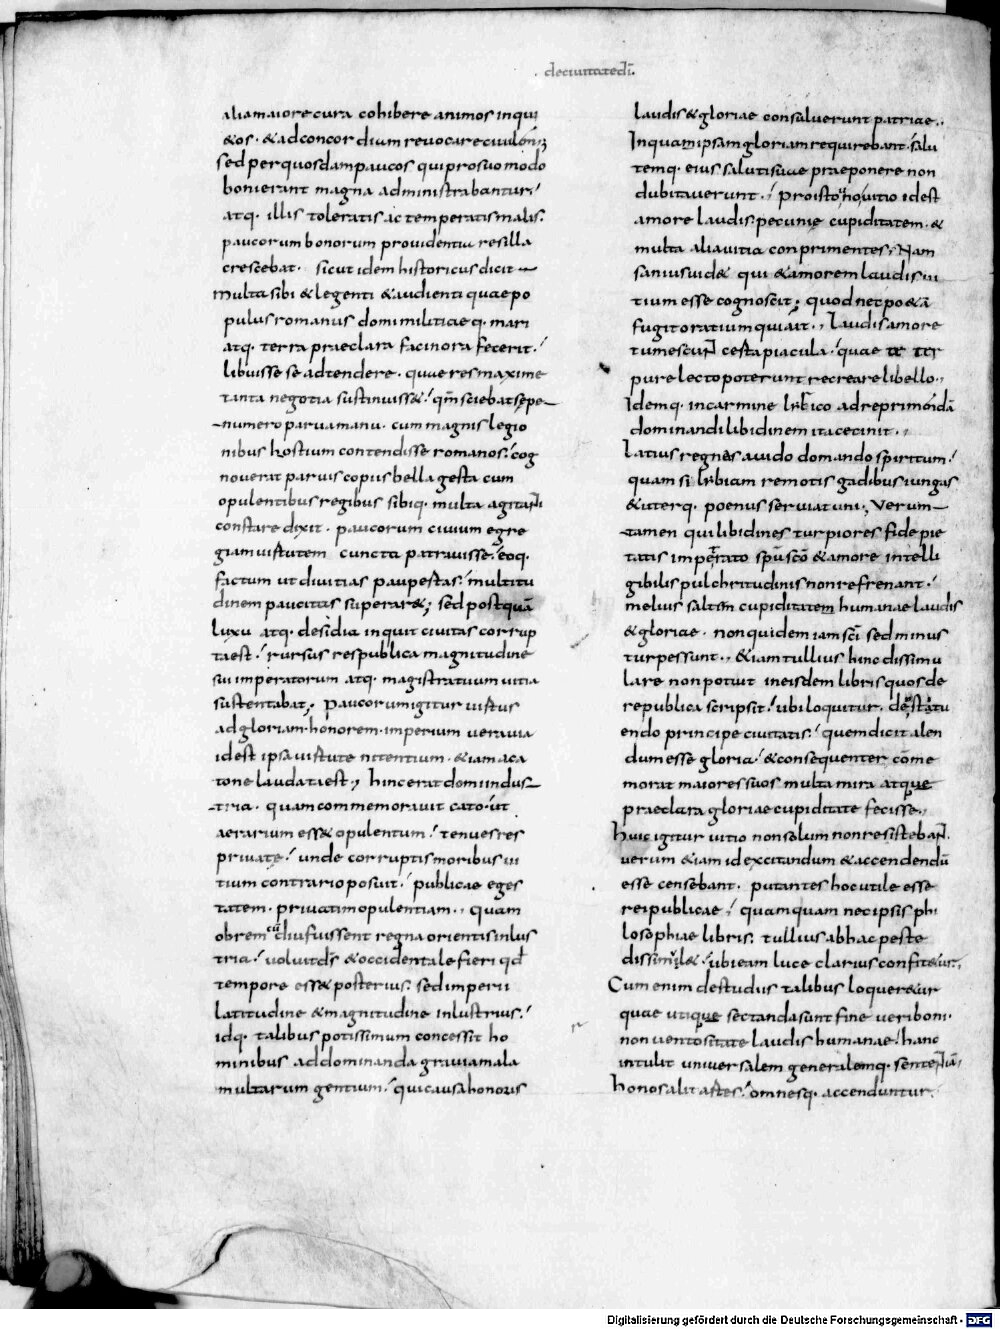 deciuitatedī.
aliamaiorecura cohibere animos inqui
&os · &adconcordium reuocareciuilōnꝫ
sed perquosdampaucos quiprosuomodo
bonierant magna administrabantur
atq· illis toleratis ac temperatismalis·
paucorumbonorum prouidentia resilla
crescebat· sicut idem historicus dicit
multasibi &legenti &audienti quaepo
pulus romanus domimilitiaeq· mari
atq· terra praeclara facinora fecerit·
libuisse se adtendere· quae res maxime
tanta negotia sustinuiss&· qm̄ sciebat sepe
numero paruamanu· cum magnis legio
nibus hostium contendisse romanos· cog
nouerat paruis copiis bella gesta cum
opulentibus regibus sibiq· multa agitanti
constare dixit· paucorum ciuium egre
giam uirtutem cuncta patrauisse· eoq·
factum ut diuitias paupertas· multitu
dinem paucitas superar&; sed postquā
luxu atq· desidia inquit ciuitas corrup
taest· rursus respublica magnitudine
sui imperatorum atq· magistratuum uitia
sustentabat· paucorumigitur uirtus
adgloriam·honorem·imperium uerauia
idest ipsauirtute nitentium· &iamaca
tone laudataest; hincerat domiindus
tria· quamcommemorauit cato·ut
aerarium ess& opulentum· tenues res
priuate· unde corruptismoribus ui
tium contrarioposuit· publicae eges
tatem· priuatimopulentiam·, quam
obrem cū diufuissent regna orientisinlus
tria· uoluitd̄s &occidentale fieri qd̄
tempore ess& posterius· sedimperii
latitudine &magnitudine inlustrius·
idq· talibus potissimum concessit ho
minibus addominanda grauiamala
multarum gentium· quicausahonoris
laudis&gloriae consuluerunt patriae·,
Inquaipsamgloriamrequirebant· salu
temq· eius salutisuae praeponere non
dubitauerunt· pro isto uno uitio idest
amore laudis· pecunię cupiditatem· &
multa aliauitia conprimentes· Nam
saniusuid& qui &amoremlaudis ui
tium esse cognoscit; quodnecpo&ā
fugit oratium quiait·, laudisamore
tumescunt certapiacula· quae te ter
pure lectopoterunt recrearelibello·,
Idemq· incarmine lyrico adreprimendā
dominandilibidinem itacecinit·,
latius regnes auido domando spiritum·
quam si lybiam remotis gadibusiungas
&uterq· poenus seruiatuni; Verum
tamen quilibidines turpiores fidepie
tatis impetrato spūscō &amore intelli
gibilis pulchritudinis nonrefrenant·
melius saltem cupiditatem humanae laudis
&gloriae· nonquidem iamscī sedminus
turpessunt·, &iamtullius hincdissimu
lare nonpotuit ineisdem librisquosde
republica scripsit· ubiloquitur· deinstitu
endo principe ciuitatis· quemdicit alen
dumesse gloria· &consequenter cōme
morat maioressuos multamira atque
praeclara gloriaecupiditate fecisse·,
huicigitur uitio nonsolum nonresistebant·
uerum &iam idexcitandum &accendendū
esse censebant· putantes hocutile esse
reipublicae· quamquam necipsisphi
losophiae libris· tullius abhacpeste
dissimul&· ubieam luce clarius confit&ur·,
Cum enim destudiis talibus loquer&ur
quae utique sectandasunt fine ueriboni·
nonuentositate laudis humanae· hanc
intulit uniuersalem generalemq· sententiā·
honosalit artes· omnesq· accenduntur·
Digitalisierung gefördert durch die Deutsche Forschungsgemeinschaft - DFG